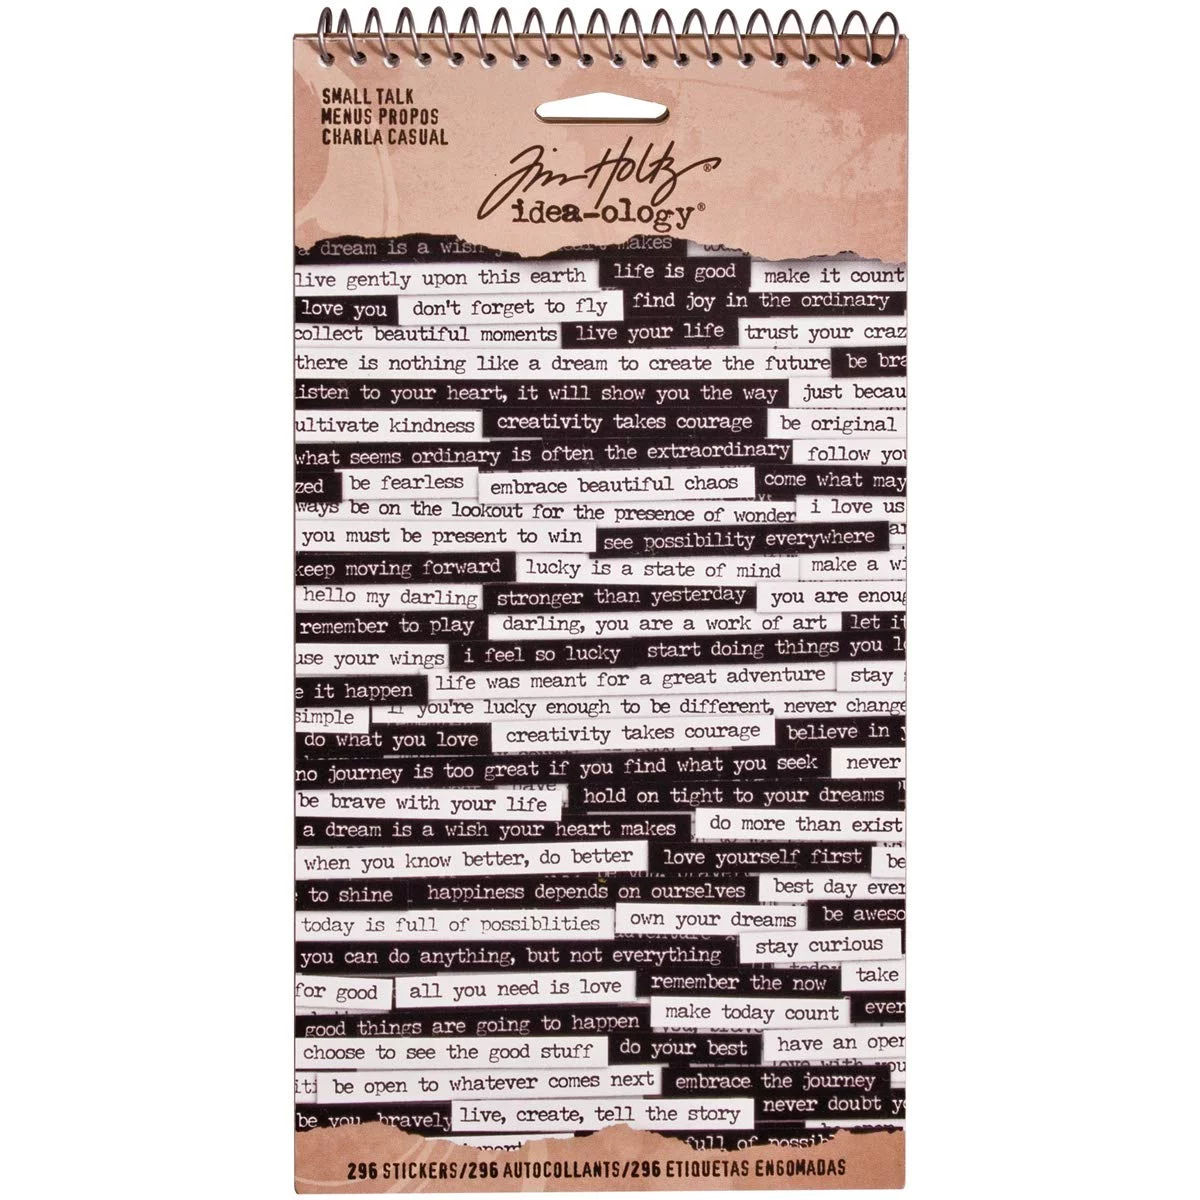 SMALL TALK
MENUS PROPOS
CHARLA CASUAL
Tim Holtz®
idea-ology®
a dream is a wish makes
live gently upon this earth life is good make it count
love you don't forget to fly find joy in the ordinary
collect beautiful moments live your life trust your craz
there is nothing like a dream to create the future be bra
isten to your heart, it will show you the way just becau
ultivate kindness creativity takes courage be original
what seems ordinary is often the extraordinary follow you
zed be fearless embrace beautiful chaos come what may
ways be on the lookout for the presence of wonder i love us
you must be present to win see possibility everywhere
keep moving forward lucky is a state of mind make a wi
hello my darling stronger than yesterday you are enoug
remember to play darling, you are a work of art let it
use your wings i feel so lucky start doing things you l
e it happen life was meant for a great adventure stay
simple if you're lucky enough to be different, never change
do what you love creativity takes courage believe in y
no journey is too great if you find what you seek never
be brave with your life hold on tight to your dreams
a dream is a wish your heart makes do more than exist
when you know better, do better love yourself first be
to shine happiness depends on ourselves best day ever
today is full of possiblities own your dreams be aweso
you can do anything, but not everything stay curious
for good all you need is love remember the now take
make today count ever
good things are going to happen
choose to see the good stuff do your best have an open
love with you
iti be open to whatever comes next embrace the journey
be you, bravely live, create, tell the story never doubt y
full of possibl
296 STICKERS/296 AUTOCOLLANTS/296 ETIQUETAS ENGOMADAS